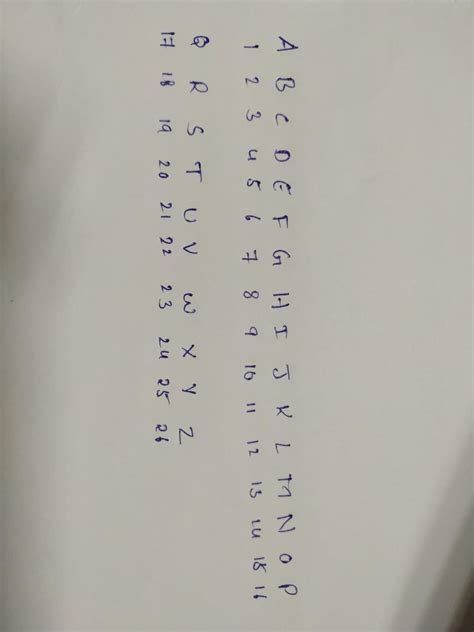 A B C D E F G H I J K L M N O P
1 2 3 4 5 6 7 8 9 10 11 12 13 14 15 16
Q R S T U V W X Y Z
17 18 19 20 21 22 23 24 25 26